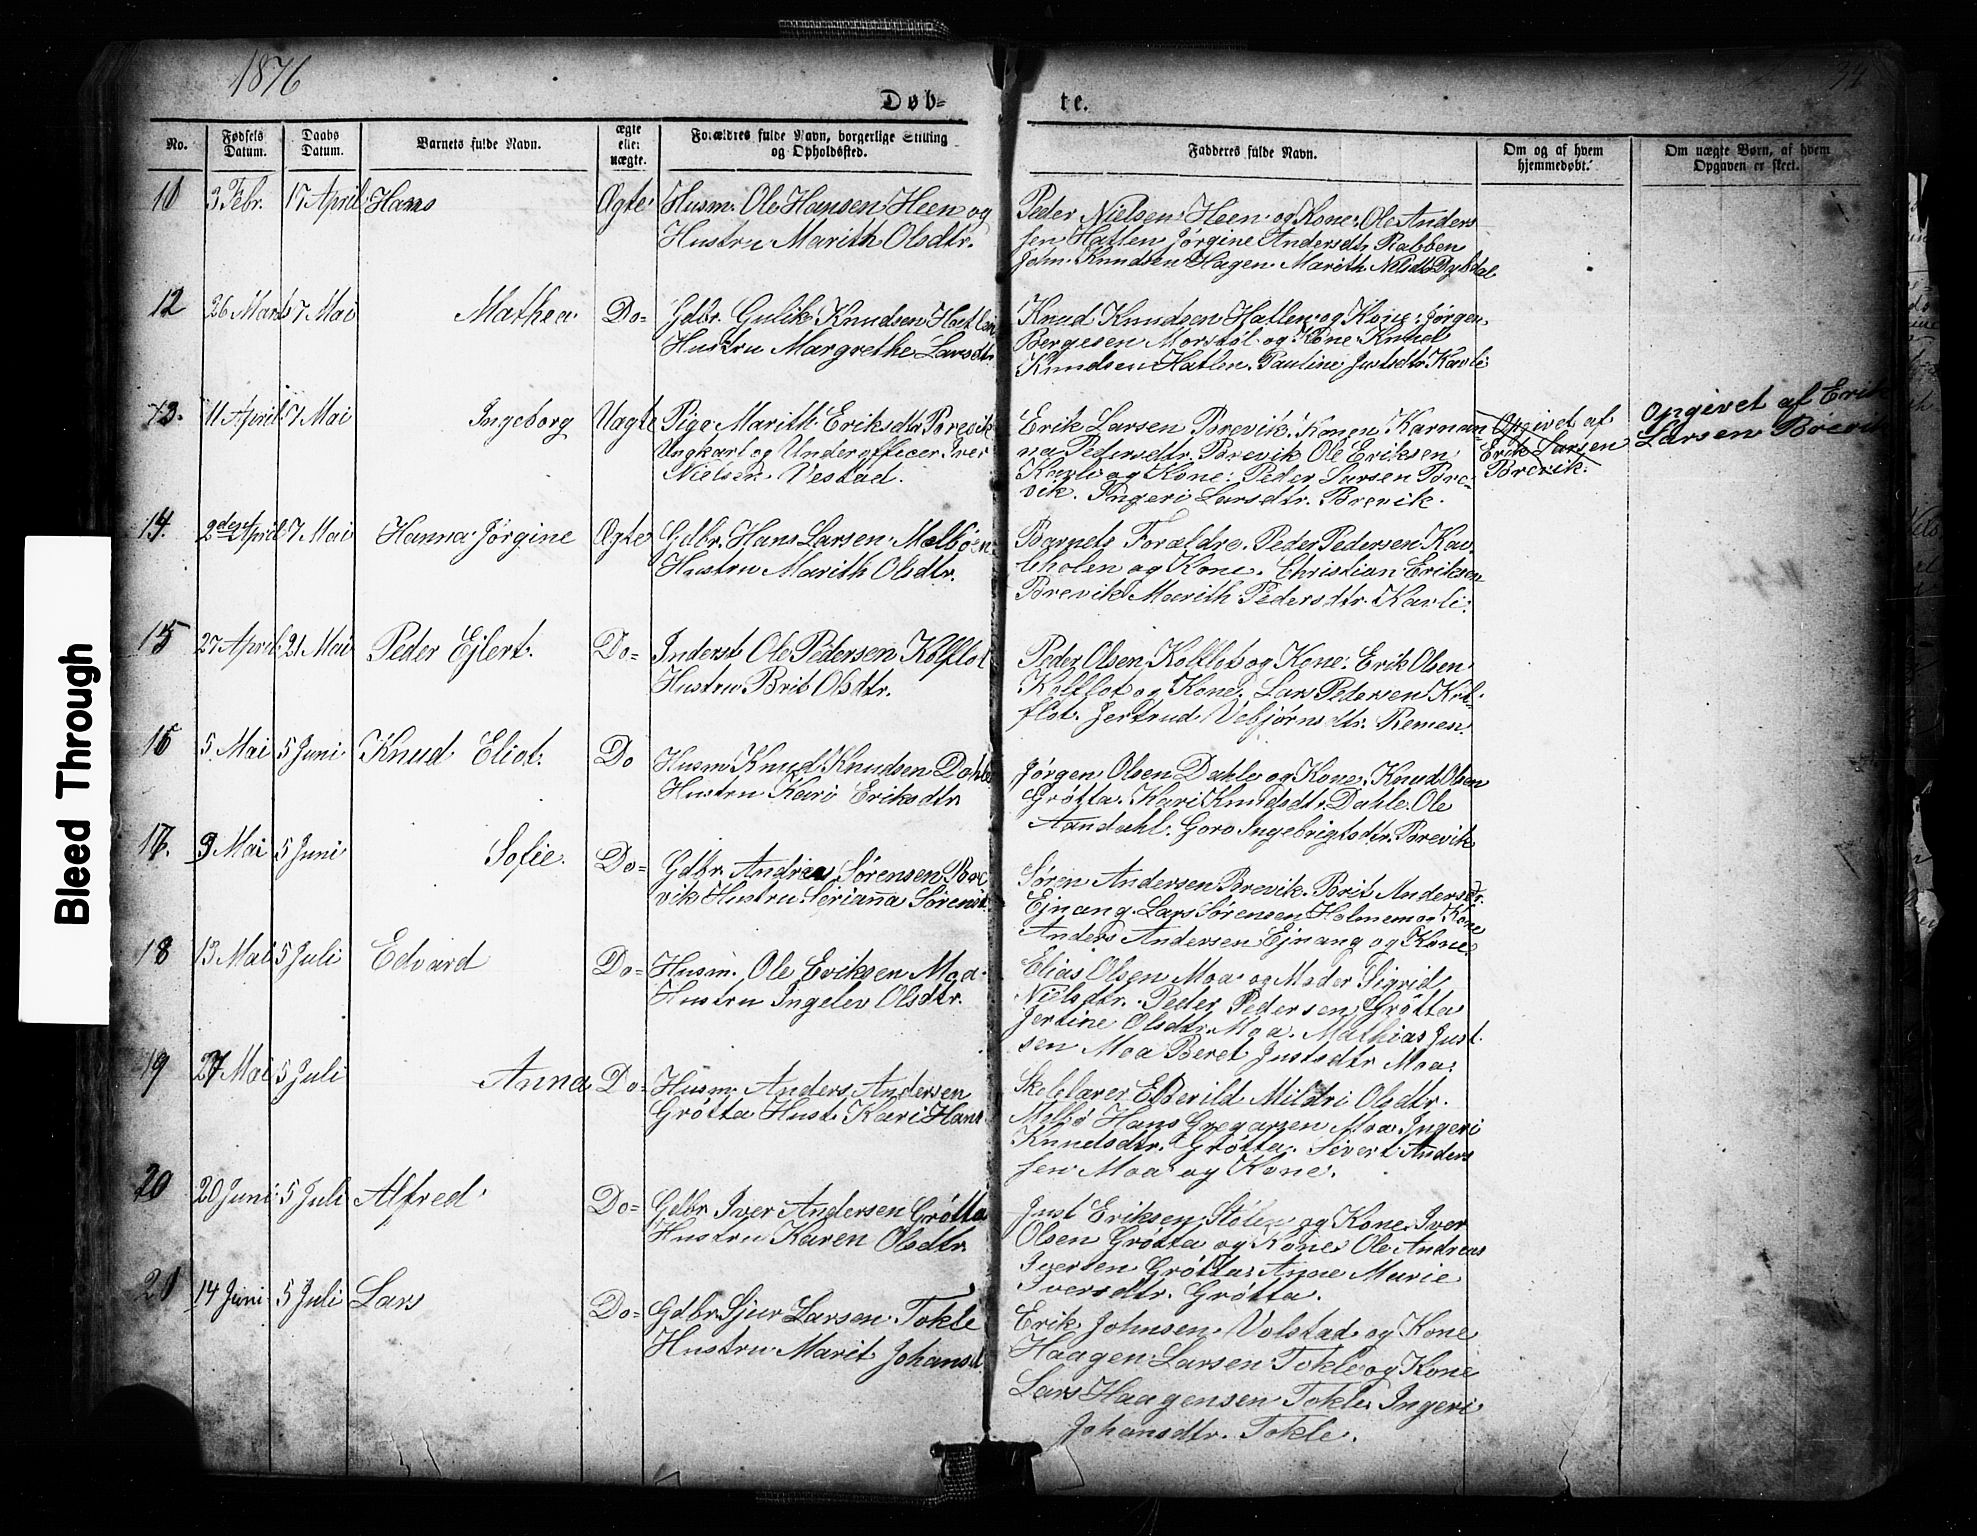 1876
34
Døb-
te.
No.
Fødsels Datum.
Daabs Datum.
Barnets fulde Navn.
ægte eller uægte.
Forældres fulde Navn, borgerlige Stilling og Opholdssted.
Fadderes fulde Navn.
Om og af hvem hjemmedøbt.
Om uægte Børn, af hvem Opgaven er skeet.
11 3 Febr. 17 April Hans Ægte Husm. Ole Hansen Heen og
Hustru Marith Olsdtr.
Peder Nielsen Heen og Kone. Ole Anders
sen Hatlen Jørgine Andersdtr Rabben
John Knudsen Hagen Marith Nilsdtr Dybdal
12 26 Marts 7 Mai Mathea Do= Gdbr. Gulik Knudsen Hatlen
Hustru Margrethe Larsdtr
Knud Knudsen Hatlen og Kone: Jørgen
Bergesen Morstøl og Kone Knud
Knudsen Hatlen. Pauline Justsdtr Kavli
13. 11 April 7 Mai Ingeborg Uægte Pige Marith Eriksdtr Brevik
Ungkarl og Underofficer Iver
Nielsen Vestad.
Erik Larsen Brevik. Konen Karnan-
na Pedersdtr. Brevik Ole Eriksen
Kavli og Kone: Peder Larsen Bre-
vik. Ingeri Larsdtr. Brevik.
Opgivet af
Erik Larsen
Brevik.
Opgivet af Erik
Larsen Brevik
14. 2den April 7 Mai Hanna Jørgine Ægte Gdbr. Hans Larsen Melbøen
Hustru Marith Olsdtr.
Barnets Forældre. Peder Pedersen Kav-
leholen og Kone. Christian Eriksen
Brevik Marith Pedersdtr. Kavli.
15 27 April 21 Mai Peder Ejlert. Do= Inderst Ole Pedersen Kolflot
Hustru Brit Olsdtr.
Peder Olsen Kolflot og Kone. Erik Olsen
Kolflot og Kone. Lars Pedersen Kol-
flot. Jertrud Vebjørnsdtr. Remen.
16 5 Mai 5 Juni Knud Eliot. Do Husm Knud Knudsen Dahle
Hustru Kari Eriksdtr
Jørgen Olsen Dahle og Kone. Knud Olsen
Grøtta. Kari Knudsdtr. Dahle. Ole
Aandahl. Goro Ingebrigtsdtr. Brevik
17. 9 Mai 5 Juni Sofie. Do= Gdbr. Andreas Sørensen Bre
vik Hustru Serianna Sørensd.
Søren Andersen Brevik. Brit Andersdtr.
Ejnang. Lars Sørensen Holmem og Kone
Anders Andersen Ejnang og Kone.
18 13 Mai 5 Juli Edvard Do= Husm. Ole Eriksen Moa
Hustru Ingelev Olsdtr.
Elias Olsen Moa og Moder Sigrid
Nielsdtr. Peder Pedersen Grøtta
Jertine Olsdtr. Moa. Mathias Just
sen Moa Beret Justsdtr Moa.
19 27 Mai 5 Juli Anna Do= Husm. Anders Andersen
Grøtta Hust. Kari Hans
Skolelærer E Berild Mildri Olsdtr.
Melbø Hans Gregarsen Moa Ingeri
Knudsdtr. Grøtta. Sivert Anders
sen Moa og Kone.
20 20 Juni 5 Juli Alfred Do= Gdbr Iver Andersen Grøtta
Hustru Karen Olsdtr
Just Eriksen Stølen og Kone. Iver
Olsen Grøtta og Kone. Ole Andreas
Iversen Grøtta. Anne Marie
Iversdtr. Grøtta.
21 14 Juni 5 Juli Lars Do= Gdbr Sjur Larsen Tokle
Hustru Marit Johansd
Erik Johnsen Volstad og Kone
Haagen Larsen Tokle og Kone
Lars Haagensen Tokle. Ingeri
Johansdtr. Tokle.
Bleed Through